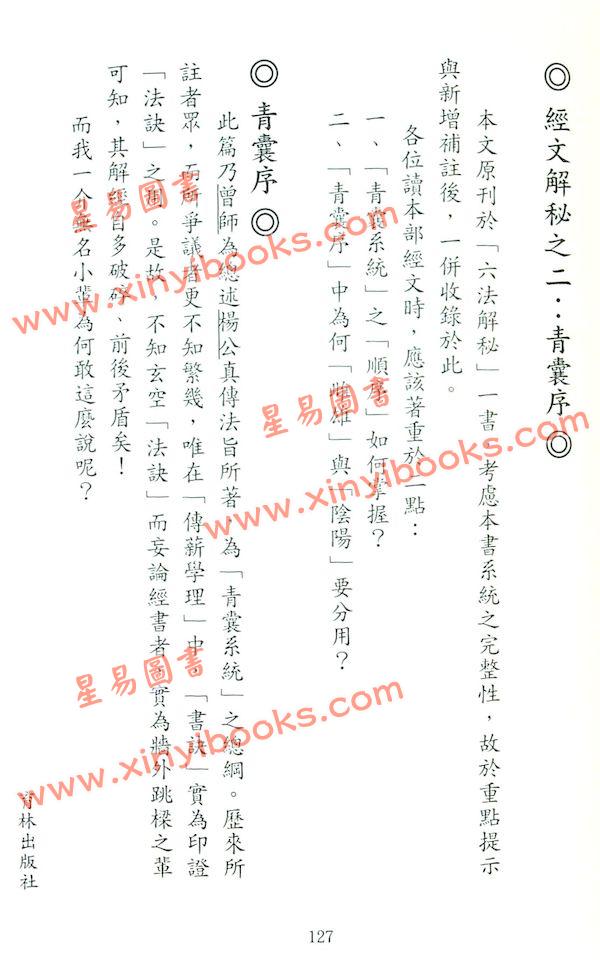 ◎ 經文解秘之二：青囊序 ◎
本文原刊於「六法解秘」一書，考慮本書系統之完整性，故於重點提示
與新增補註後，一併收錄於此。
各位讀本部經文時，應該著重於二點：
一、「青囊系統」之「順序」如何掌握？
二、「青囊序」中為何「雌雄」與「陰陽」要分用？
◎ 青囊序 ◎
此篇乃曾師為總述楊公真傳法旨所著，為「青囊系統」之總綱。歷來所
註者眾，而所爭議者更不知繁幾，唯在「傳薪學理」中，「書訣」實為印證
「法訣」之用。是故，不知玄空「法訣」而妄論經書者，實為牆外跳樑之輩
可知，其解經自多破碎、前後矛盾矣！
而我一個無名小輩為何敢這麼說呢？
育林出版社
127
星易圖書
www.xinyibooks.com
星易圖書
www.xinyibooks.com
星易圖書
www.xinyibooks.com